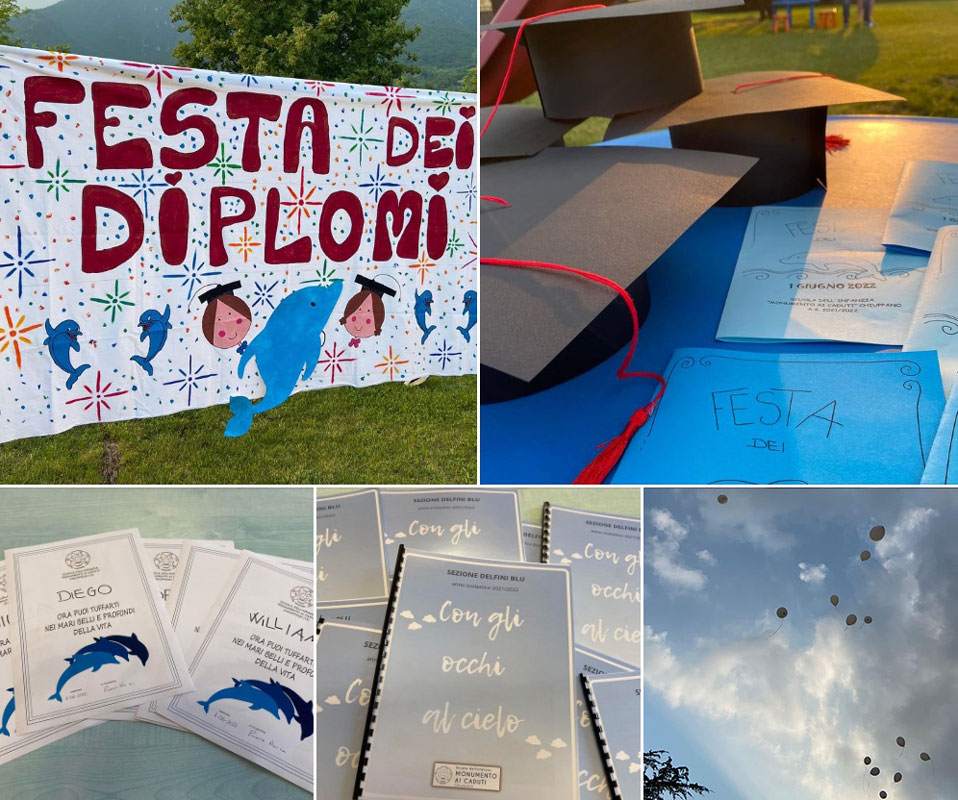 FESTA DEI
DIPLOMi
FESTA
DEI
1 GIUGNO 2022
SCUOLA DELL'INFANZIA
"MONUMENTO AI CADUTI" CHIUPPANO
A.S. 2021/2022
FESTA
DEI
DIEGO
ORA PUOI TUFFARTI
NEI MARI BELLI E PROFONDI
DELLA VITA
WILLIAM
ORA PUOI TUFFARTI
NEI MARI BELLI E PROFONDI
DELLA VITA
SEZIONE DELFINI BLU
Con gli
SEZIONE DELFINI BLU
anno scolastico 2021/2022
Con gli
occhi
al cielo
MONUMENTO
AI CADUTI
SEZIONE DELFINI BLU
Con gli
occhi
al cielo